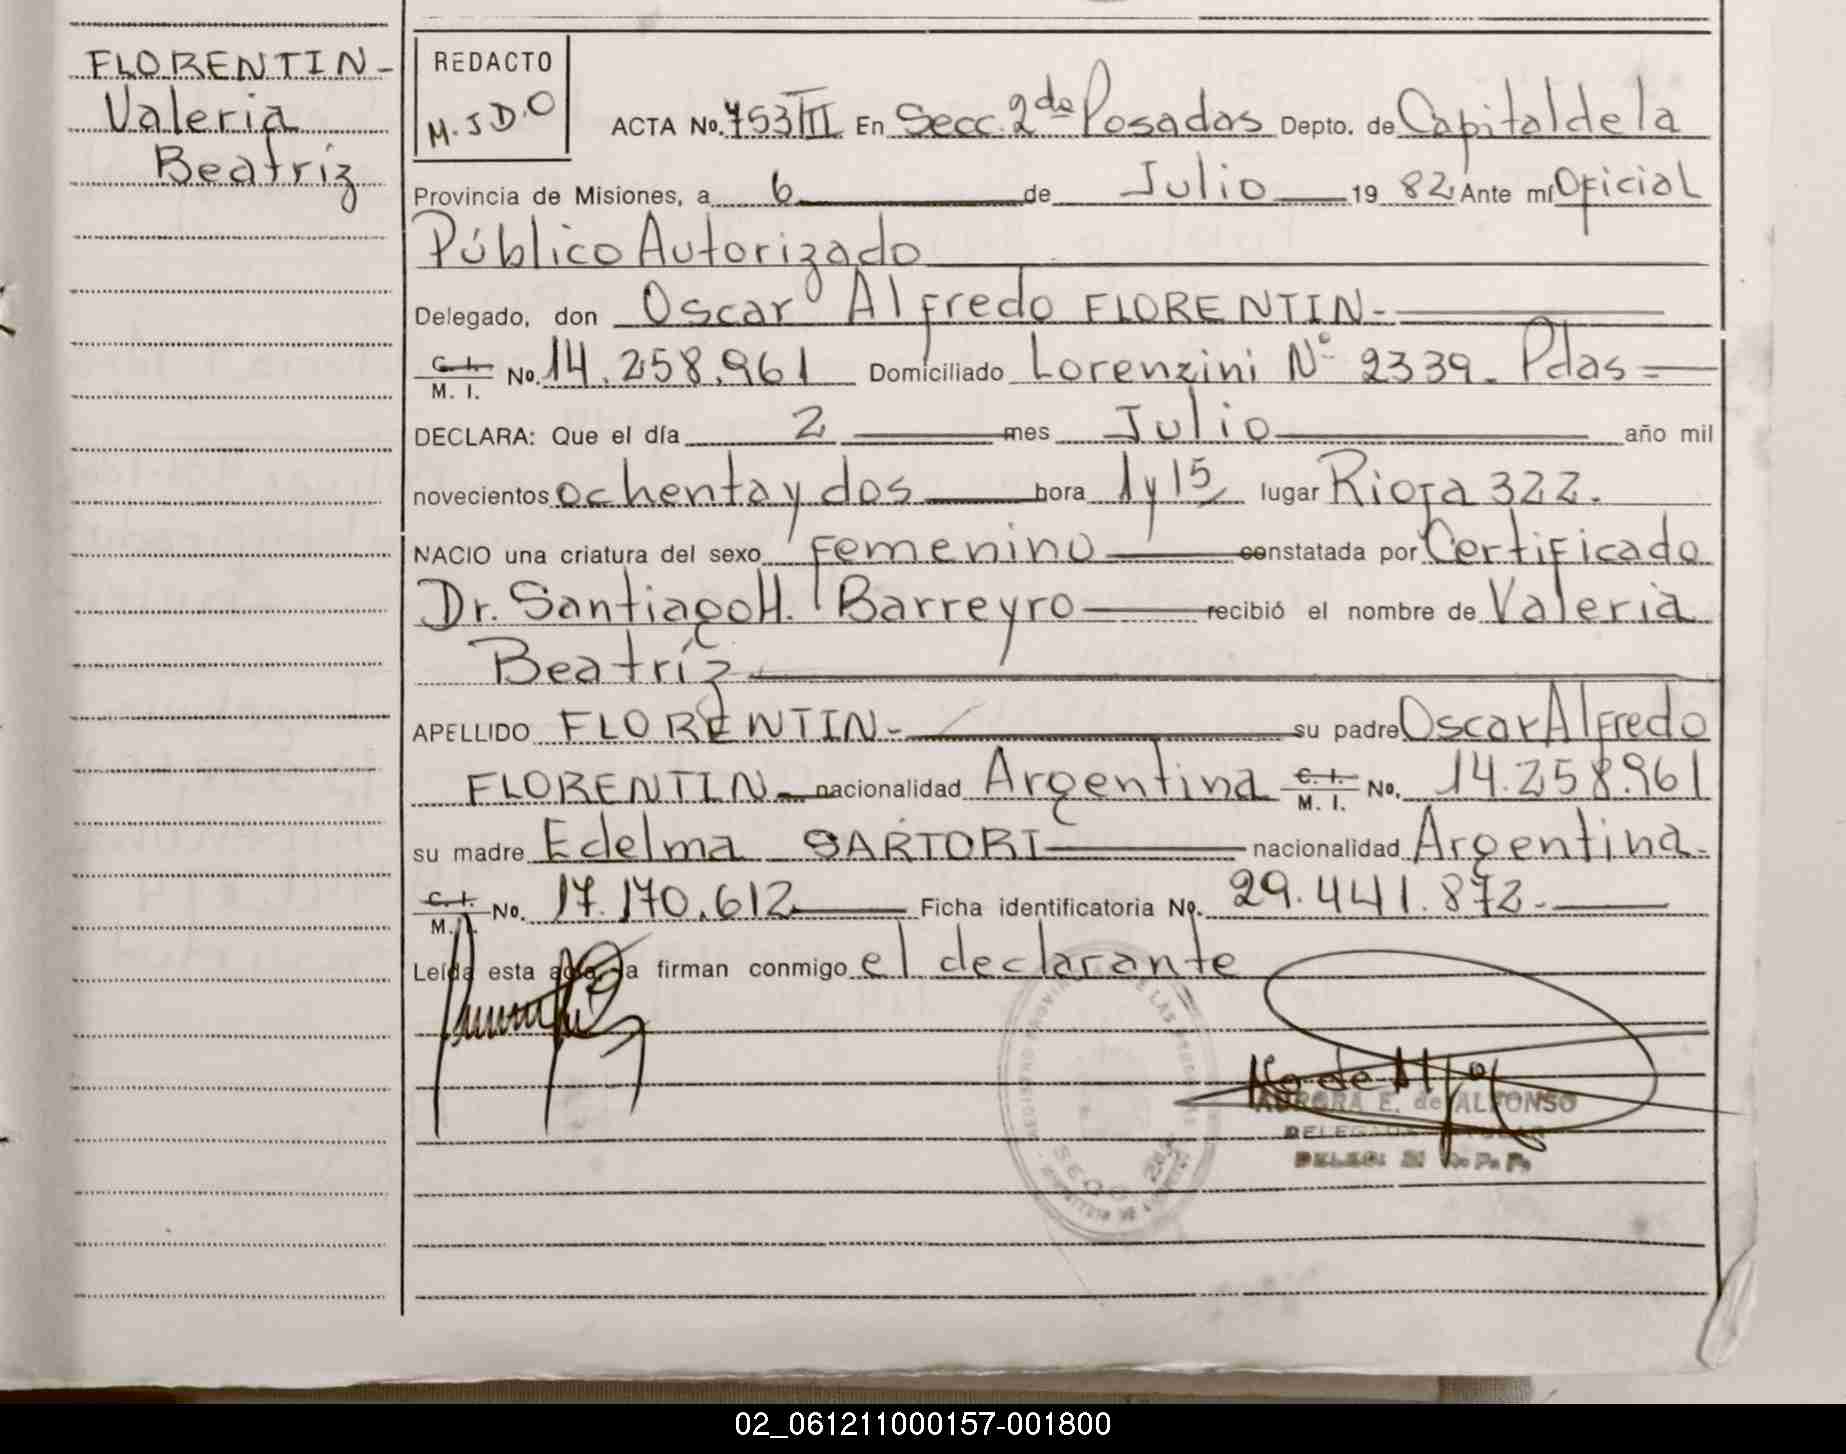 FLORENTIN-
Valeria
Beatríz
REDACTO
M.J D.O
ACTA No. 753 III En Secc. 2da Posadas Depto. de Capital de la
Provincia de Misiones, a 6 de Julio 19 82 Ante mí Oficial
Público Autorizado
Delegado, don Oscar Alfredo FLORENTIN-
C. I. M. I. No. 14.258.961 Domiciliado Lorenzini Nº 2339. Pdas=
DECLARA: Que el día 2 mes Julio año mil
novecientos ochenta y dos hora 1 y 15 lugar Rioja 322.
NACIO una criatura del sexo femenino constatada por Certificado
Dr. Santiago H. Barreyro recibió el nombre de Valeria
Beatríz
APELLIDO FLORENTIN- su padre Oscar Alfredo
FLORENTIN nacionalidad Argentina C. I. M. I. No. 14.258.961
su madre Edelma SARTORI nacionalidad Argentina.
C. I. M. I. No. 17.170.612 Ficha identificatoria No. 29.441.872.-
Leída esta acta, la firman conmigo el declarante
AURORA E. de ALFONSO
DELEGADA TITULAR
SECC. 2da
02_061211000157-001800